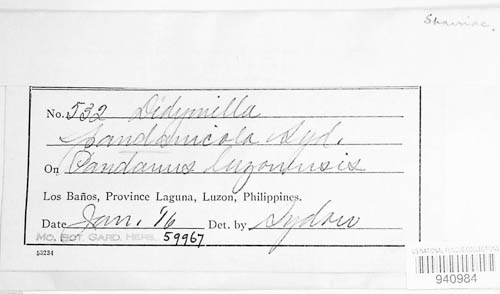 No. 532 Didymella
pandanicola Syd.
On Pandanus luzonensis
Los Baños, Province Laguna, Luzon, Philippines.
Date Jan. '16 Det. by Sydow
MO. BOT. GARD. HERB. 59967
53234
US NATIONAL FUNGUS COLLECTIONS
940984